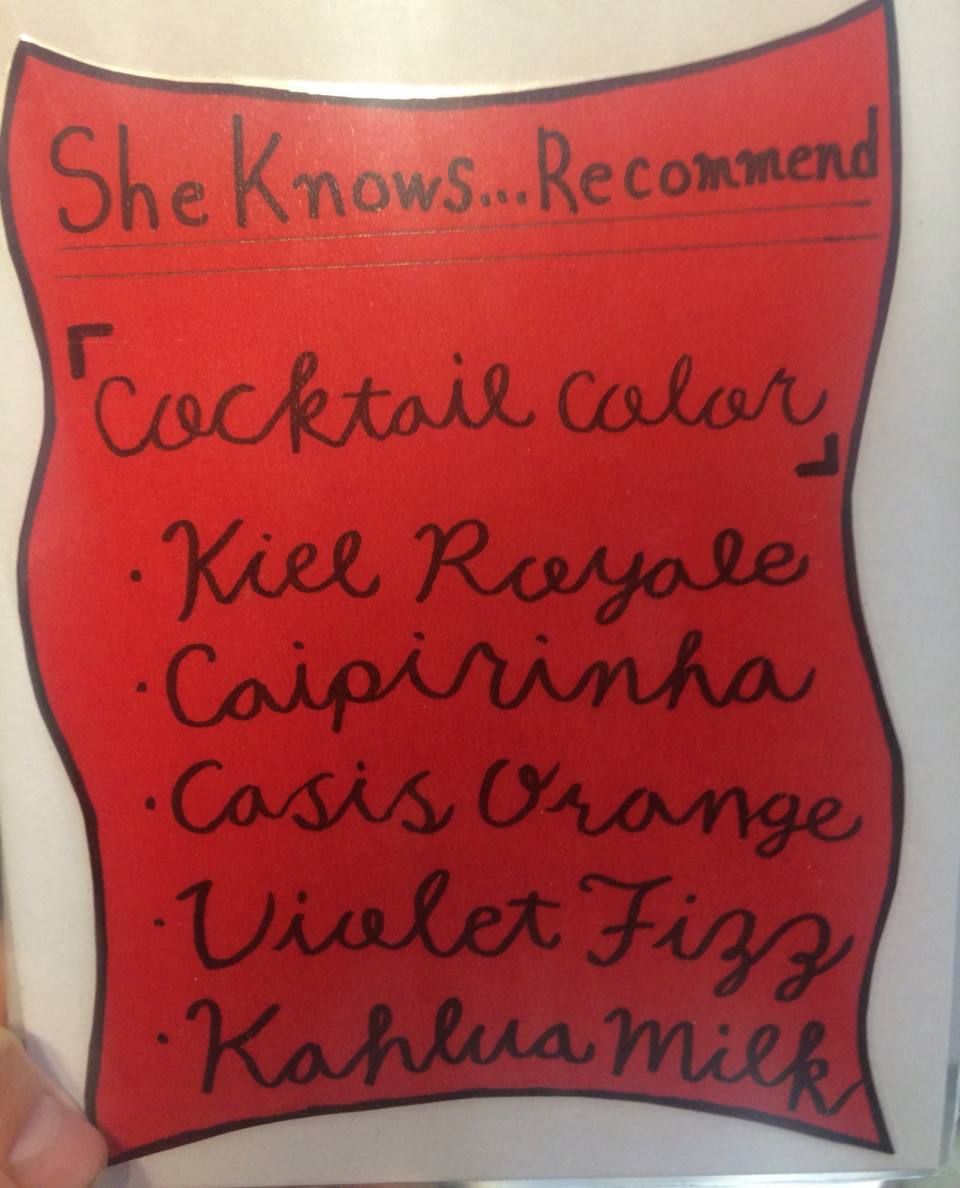 She Knows...Recommend
「Cocktail color」
・Kiel Royale
・Caipirinha
・Casis Orange
・Violet Fizz
・Kahlua Milk